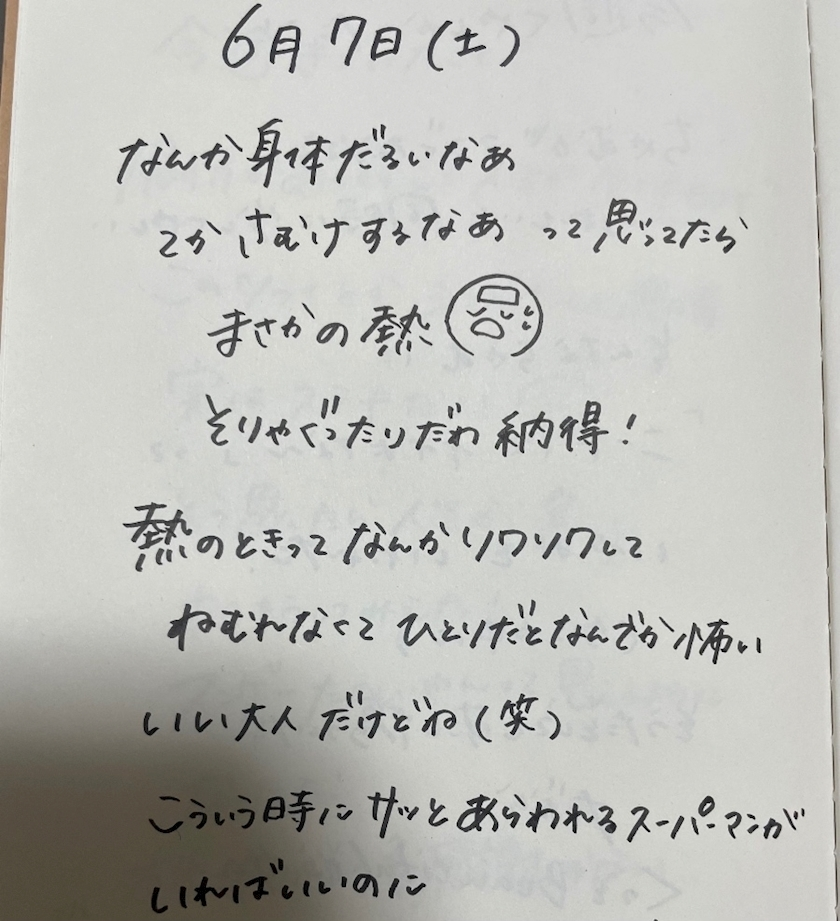 6月7日(土)
なんか身体だるいなぁ
てかさむけするなあ って思ってたら
まさかの熱
そりゃぐったりだわ 納得!
熱のときってなんかソワソワして
ねむれなくて ひとりだとなんでか怖い
いい大人だけどね(笑)
こういう時に サッとあらわれるスーパーマンが
いればいいのに